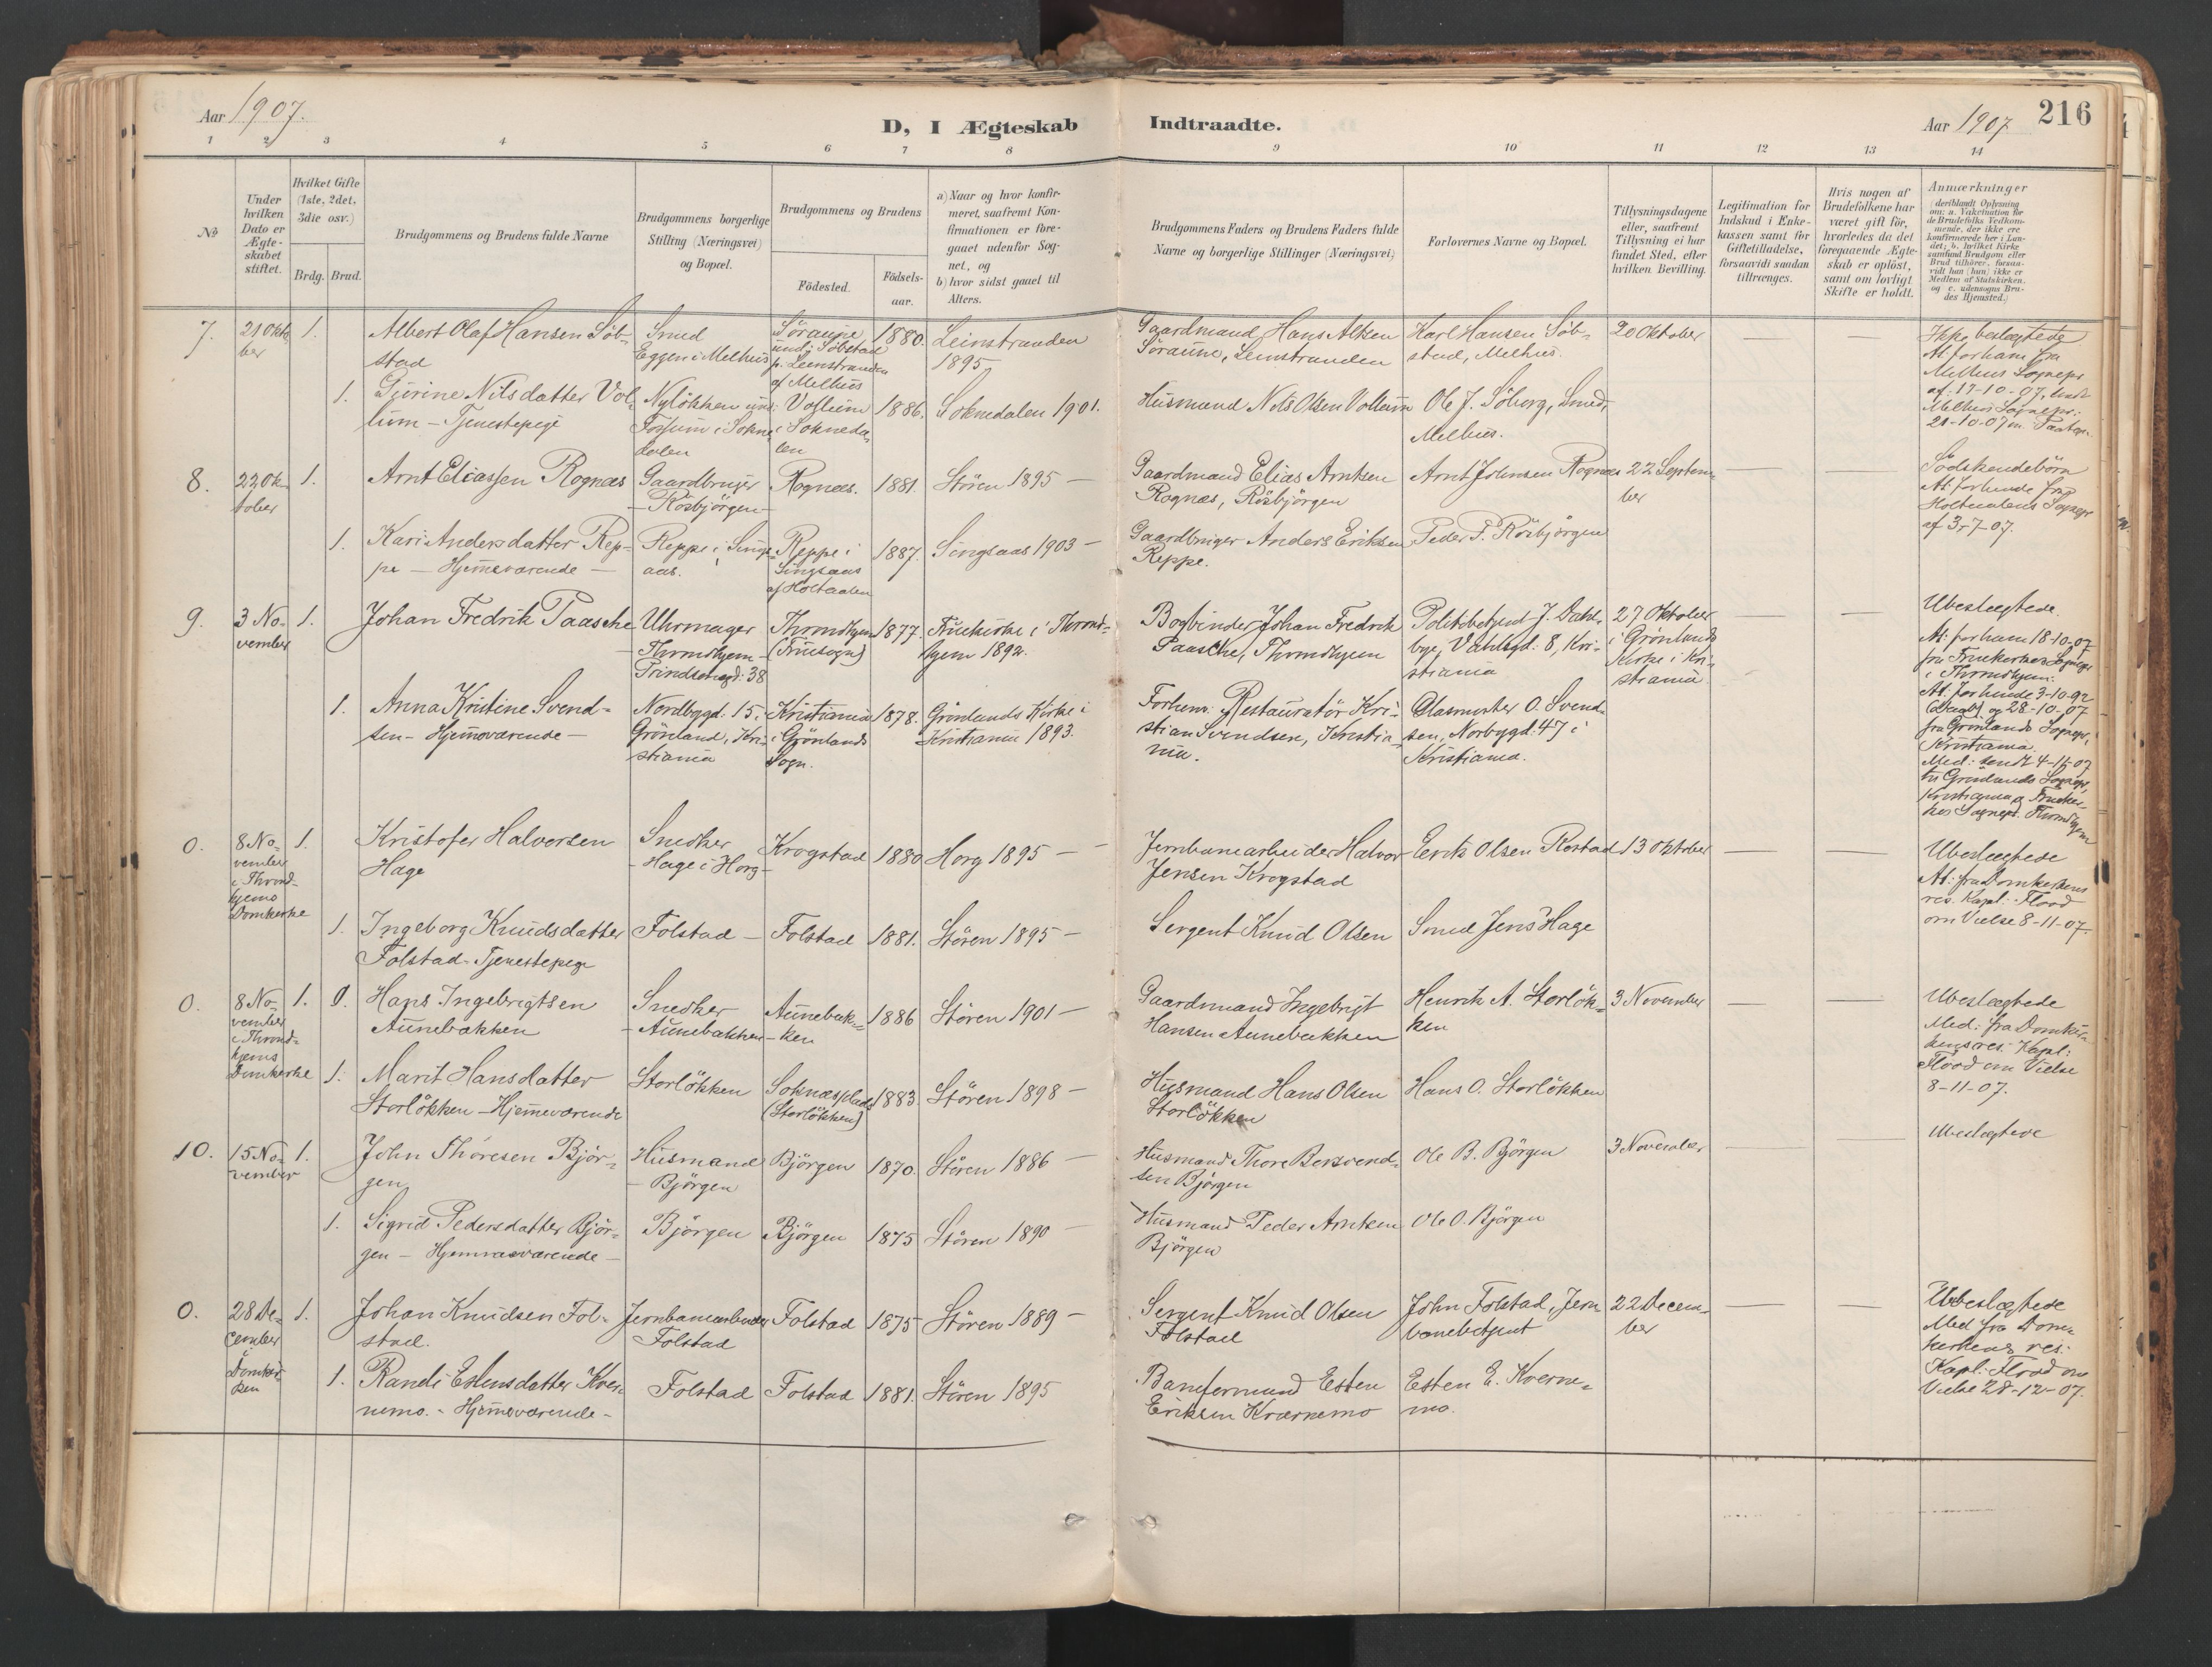 Aar 1907.
D, I Ægteskab Indtraadte.
Aar 1907
216
1 2 3 4 5 6 7 8 9 10 11 12 13 14
No
Under hvilken Dato er Ægte-skabet stiftet.
Hvilket Gifte (1ste, 2det, 3die osv.)
Brdg. Brud.
Brudgommens og Brudens fulde Navne
Brudgommens borgerlige Stilling (Næringsvei) og Bopæl.
Brudgommens og Brudens
Födested.
Födsels-aar.
a) Naar og hvor konfir-meret, saafremt Kon-firmationen er fore-gaaet udenfor Sog-net, og
b) hvor sidst gaaet til Alters.
Brudgommens Faders og Brudens Faders fulde Navne og borgerlige Stillinger (Næringsvei)
Forlovernes Navne og Bopæl.
Tillysningsdagene eller, saafremt Tillysning ei har fundet Sted, efter hvilken Bevilling.
Legitimation for Indskud i Enke-kassen samt for Giftetilladelse, forsaavidt saadan tiltrænges.
Hvis nogen af Brudefolkene har været gift för, hvorledes da det foregaaende Ægte-skab er oplöst, samt om lovligt Skifte er holdt.
Anmærkninger (deriblandt Oplysning om: a. Vakcination for de Brudefolks Vedkom-mende, der ikke ere konfirmerede her i Lan-det; b. hvilket Kirke samfund Brudgom eller Brud tilhörer, forsaa-vidt han (hun) ikke er Medlem af Statskirken, og c. udensogns Bru-des Hjemsted.)
7. 21 Okto-ber 1. Albert Olaf Hansen Söb-stad
Smed Eggen i Melhus
Söraune und. Söbstad p. Leinstranden af Melhus
1880. Leinstranden 1895
Gaardmand Hans Altsen Söraune, Leinstranden
Karl Hansen Söb-stad, Melhus.
20 Oktober
Ikke beslægtede
At. for ham fra Melhus Sognepr. af 17-10-07, sendt Melhus Sognepr: 21-10-07
1. Gurine Nilsdatter Vol-lum - Tjenestepige
Nylökken und. Fossum i Sokne-dalen
Vollum i Sokneda-len
1886. Soknedalen 1901.
Husmand Nils Olsen Vollum
Ole J. Söberg, Smed, Melhus.
8. 22 Ok-tober 1. Arnt Eliassen Rognæs
Gaardbruger - Rösbjörgen -
Rognæs. 1881. Stören 1895 -
Gaardmand Elias Arntsen Rognæs, Rösbjörgen
Arnt Johnsen Rognæs
22 Septem-ber
Södskendebörn
At: for hende fra Holtaalens Sognepr af 3-7-07.
1. Kari Andersdatter Rep-pe - Hjemmeværende -
Reppe i Sings-aas.
Reppe i Singsaas af Holtaalen
1887. Singsaas 1903 -
Gaardbruger Anders Eriksen Reppe.
Peder P. Rösbjörgen
9. 3 No-vember 1. Johan Fredrik Paasche
Uhrmager - Throndhjem - Prindsensgd: 38
Throndhjem (Fruesogn)
1877. Fruekirke i Thrond-hjem 1892.
Bogbinder Johan Fredrik Paasche, Throndhjem
Politibetjent J. Dahl-bye, Vahlsgd: 8, Kri-stiania
27 Oktober i Grönlands Kirke i Kri-stiania
Ubeslægtede.
At: for ham 18-10-07 fra Fruekirkes Sognepr i Throndhjem.
At: for hende 3-10-92 (Daab) og 28-10-07 fra Grönlands Sognepr, Kristiania.
Med: sendt 4-11-07 til Grönlands Sognepr, Kristiania og Fruekir-kes Sognepr. Throndhjem
1. Anna Kristine Svend-sen - Hjemmeværende -
Nordbygd: 15, Grönland, Kri-stiania
Kristiania i Grönlands Sogn.
1878. Grönlands Kirke i Kristiania 1893.
Forhenv: Restauratör Kri-stian Svendsen, Kristia-nia.
Glasmester O. Svend-sen, Norbygd: 47 i Kristiania.
0. 8 No-vember i Thrond-hjems Domkirke 1. Kristofer Halvorsen Hage
Snedker - Hage i Horg -
Krogstad 1880 Horg 1895 -
Jernbanearbeider Halvor Jensen Krogstad
Erik Olsen Rostad
13 Oktober
Ubeslægtede
At: fra Domkirkens res. Kapl: Flood om Vielse 8-11-07.
1. Ingeborg Knudsdatter Folstad - Tjenestepige
Folstad - Folstad 1881. Stören 1895 -
Sergent Knud Olsen
Smed Jens Hage
0. 8 No-vember i Thrond-hjems Domkirke 1. 0. Hans Ingebrigtsen Aunebakken
Snedker - Aunebakken -
Aunebak-ken 1886 Stören 1901 -
Gaardmand Ingebrigt Hansen Aunebakken
Henrik A. Storlök-ken
3 November
Ubeslægtede
Med: fra Domkir-kens res: Kapl: Flood om Vielse 8-11-07.
1. Marit Hansdatter Storlökken - Hjemmeværende
Storlökken
Soknæsplads (Storlökken)
1883 Stören 1898 -
Husmand Hans Olsen Storlökken
Hans O. Storlökken
10. 15 No-vember 1. John Thoresen Björ-gen
Husmand - Björgen
Björgen 1870. Stören 1886 -
Husmand Thore Bersvend-sen Björgen
Ole B. Björgen
3 November
Ubeslægtede
1. Sigrid Pedersdatter Björ-gen - Hjemmeværende -
Björgen Björgen 1875 Stören 1890 -
Husmand Peder Arntsen Björgen
Ole O. Björgen
0. 28 De-cember Domkir-ken 1. Johan Knudsen Fol-stad.
Jernbanearbeider Folstad
Folstad 1875 Stören 1889 -
Sergent Knud Olsen Folstad
John Folstad, Jern-banebetjent
22 Decem-ber
Ubeslægtede
Med fra Dom-kirkens res: Kapl: Flood om Vielse 28-12-07.
1. Randi Estensdatter Kver-nemo. - Hjemmeværende -
Folstad Folstad 1881. Stören 1895
Baneformand Esten Eriksen Kvernemo
Esten E. Kverne-mo.